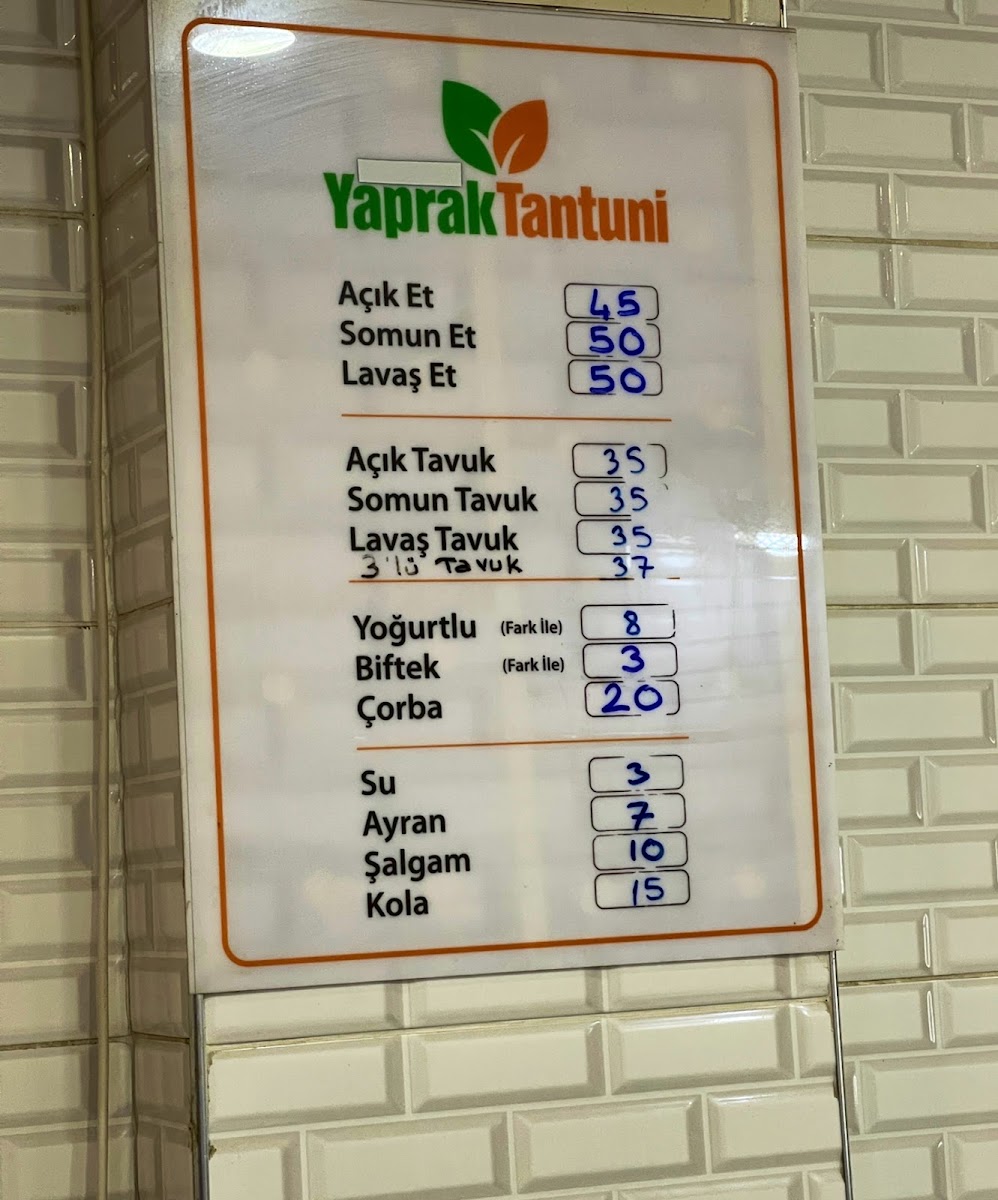 Yaprak Tantuni
Açık Et 45
Somun Et 50
Lavaş Et 50
Açık Tavuk 35
Somun Tavuk 35
Lavaş Tavuk 35
3'lü Tavuk 37
Yoğurtlu (Fark İle) 8
Biftek (Fark İle) 3
Çorba 20
Su 3
Ayran 7
Şalgam 10
Kola 15